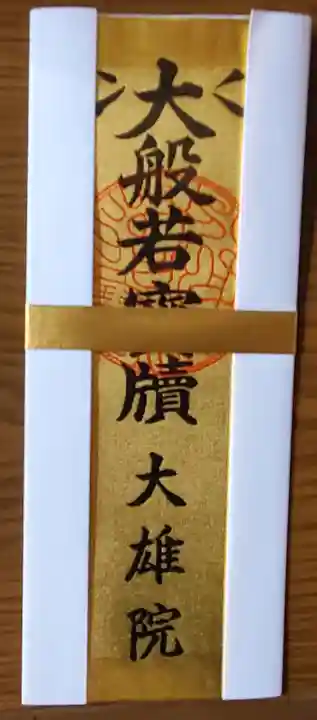 大般若寳牘
大雄院